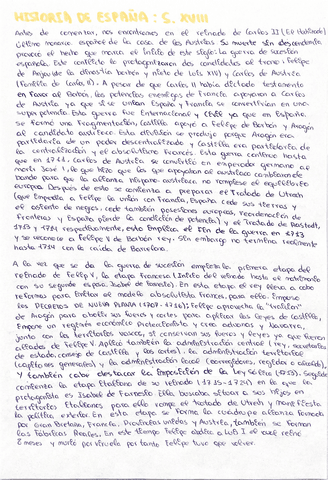 HISTORIA DE ESPAÑA: S. XVIII
Antes de comenzar, nos encontramos en el reinado de Carlos II (El Hechizado)
último monarca español de la casa de los Austrias. Su muerte sin descendencia
provoca el hecho que marca el inicio de este siglo: la guerra de sucesión
española. Este conflicto lo protagonizaron dos candidatos al trono: Felipe
de Anjou (de la dinastía borbón y nieto de Luis XIV) y Carlos de Austria
(Familia de Carlos II). A pesar de que Carlos II había dictado testamento
en favor al Borbón, las potencias enemigas de Francia apoyaron a Carlos
de Austria ya que si se unían España y Francia se convertirían en una
super potencia. Esta guerra fue Internacional y civil ya que en España
se formó una fragmentación: Castilla apoyó a Felipe de Borbón y Aragón
al candidato austriaco. Esta división se produjo porque Aragón era
partidaria de un poder descentralizado y Castilla era partidaria de
la centralización y el absolutismo Francés. Esta guerra continuó hasta
que en 1711, Carlos de Austria se convirtió en emperador germano al
morir José I, lo que hizo que los que apoyaban al austriaco cambiaran de
bando para que la alianza hispano-austriaca no rompiese el equilibrio
europeo. Después de esto se comienza a preparar el Tratado de Utrech
(que impedía a Felipe la unión con Francia, España cede sus tierras y
el asiento de negros, cede también posesiones europeas, reordenación de
Fronteras y España pierde la condición de potencia) y el Tratado de Rastadt,
1713 y 1714 respectivamente, esto implica el fin de la guerra en 1713
y se reconoce a Felipe V de Borbón rey. Sin embargo no termina realmente
hasta 1714 con la caída de Barcelona.
A la vez que se da la guerra de sucesión empieza la primera etapa del
reinado de Felipe V, la etapa francesa (Inicio del reinado hasta el matrimonio
con su segunda esposa Isabel de Farnesio). En esta etapa el rey lleva a cabo
reformas para imponer el modelo absolutista francés, para ello, impuso
los DECRETOS DE NUEVA PLANTA (1707-1716): Felipe aprovecha la "traición"
de Aragón para abolir sus fueros y cortes para aplicar las leyes de Castilla,
Impone un régimen económico proteccionista y crea aduanas y Navarra,
junto con los territorios vascos, sí conservan sus fueros y leyes ya que fueron
aliados de Felipe V. Aplicó también la administración central (rey, secretarios
de estado, consejo de Castilla, y las cortes), la administración territorial
(capitanes generales) y la administración local (corregidores, regidores o alcaldes),
Y también cabe destacar la imposición de la Ley Sálica (1713). Seguido
comienza la etapa Italiana de su reinado (1715-1724) en la que la
protagonista es Isabel de Farnesio. Ella buscaba situar a sus hijos en
territorios Italianos para ello rompe el tratado de Utrech y manifiesta
la política exterior. En esta etapa se forma la cuádruple alianza formada
por Gran Bretaña, Francia, Provincias unidas y Austria, también se forman
las Fábricas Reales. En este tiempo Felipe abdica a Luis I el cual reinó
7 meses y murió por viruela por tanto Felipe tuvo que volver.